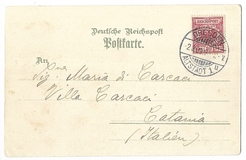 Deutsche Reichspost
Postkarte.
An
Sig.na Maria di Carcaci
Villa Carcaci
Catania
(Italien)
ALTSTADT